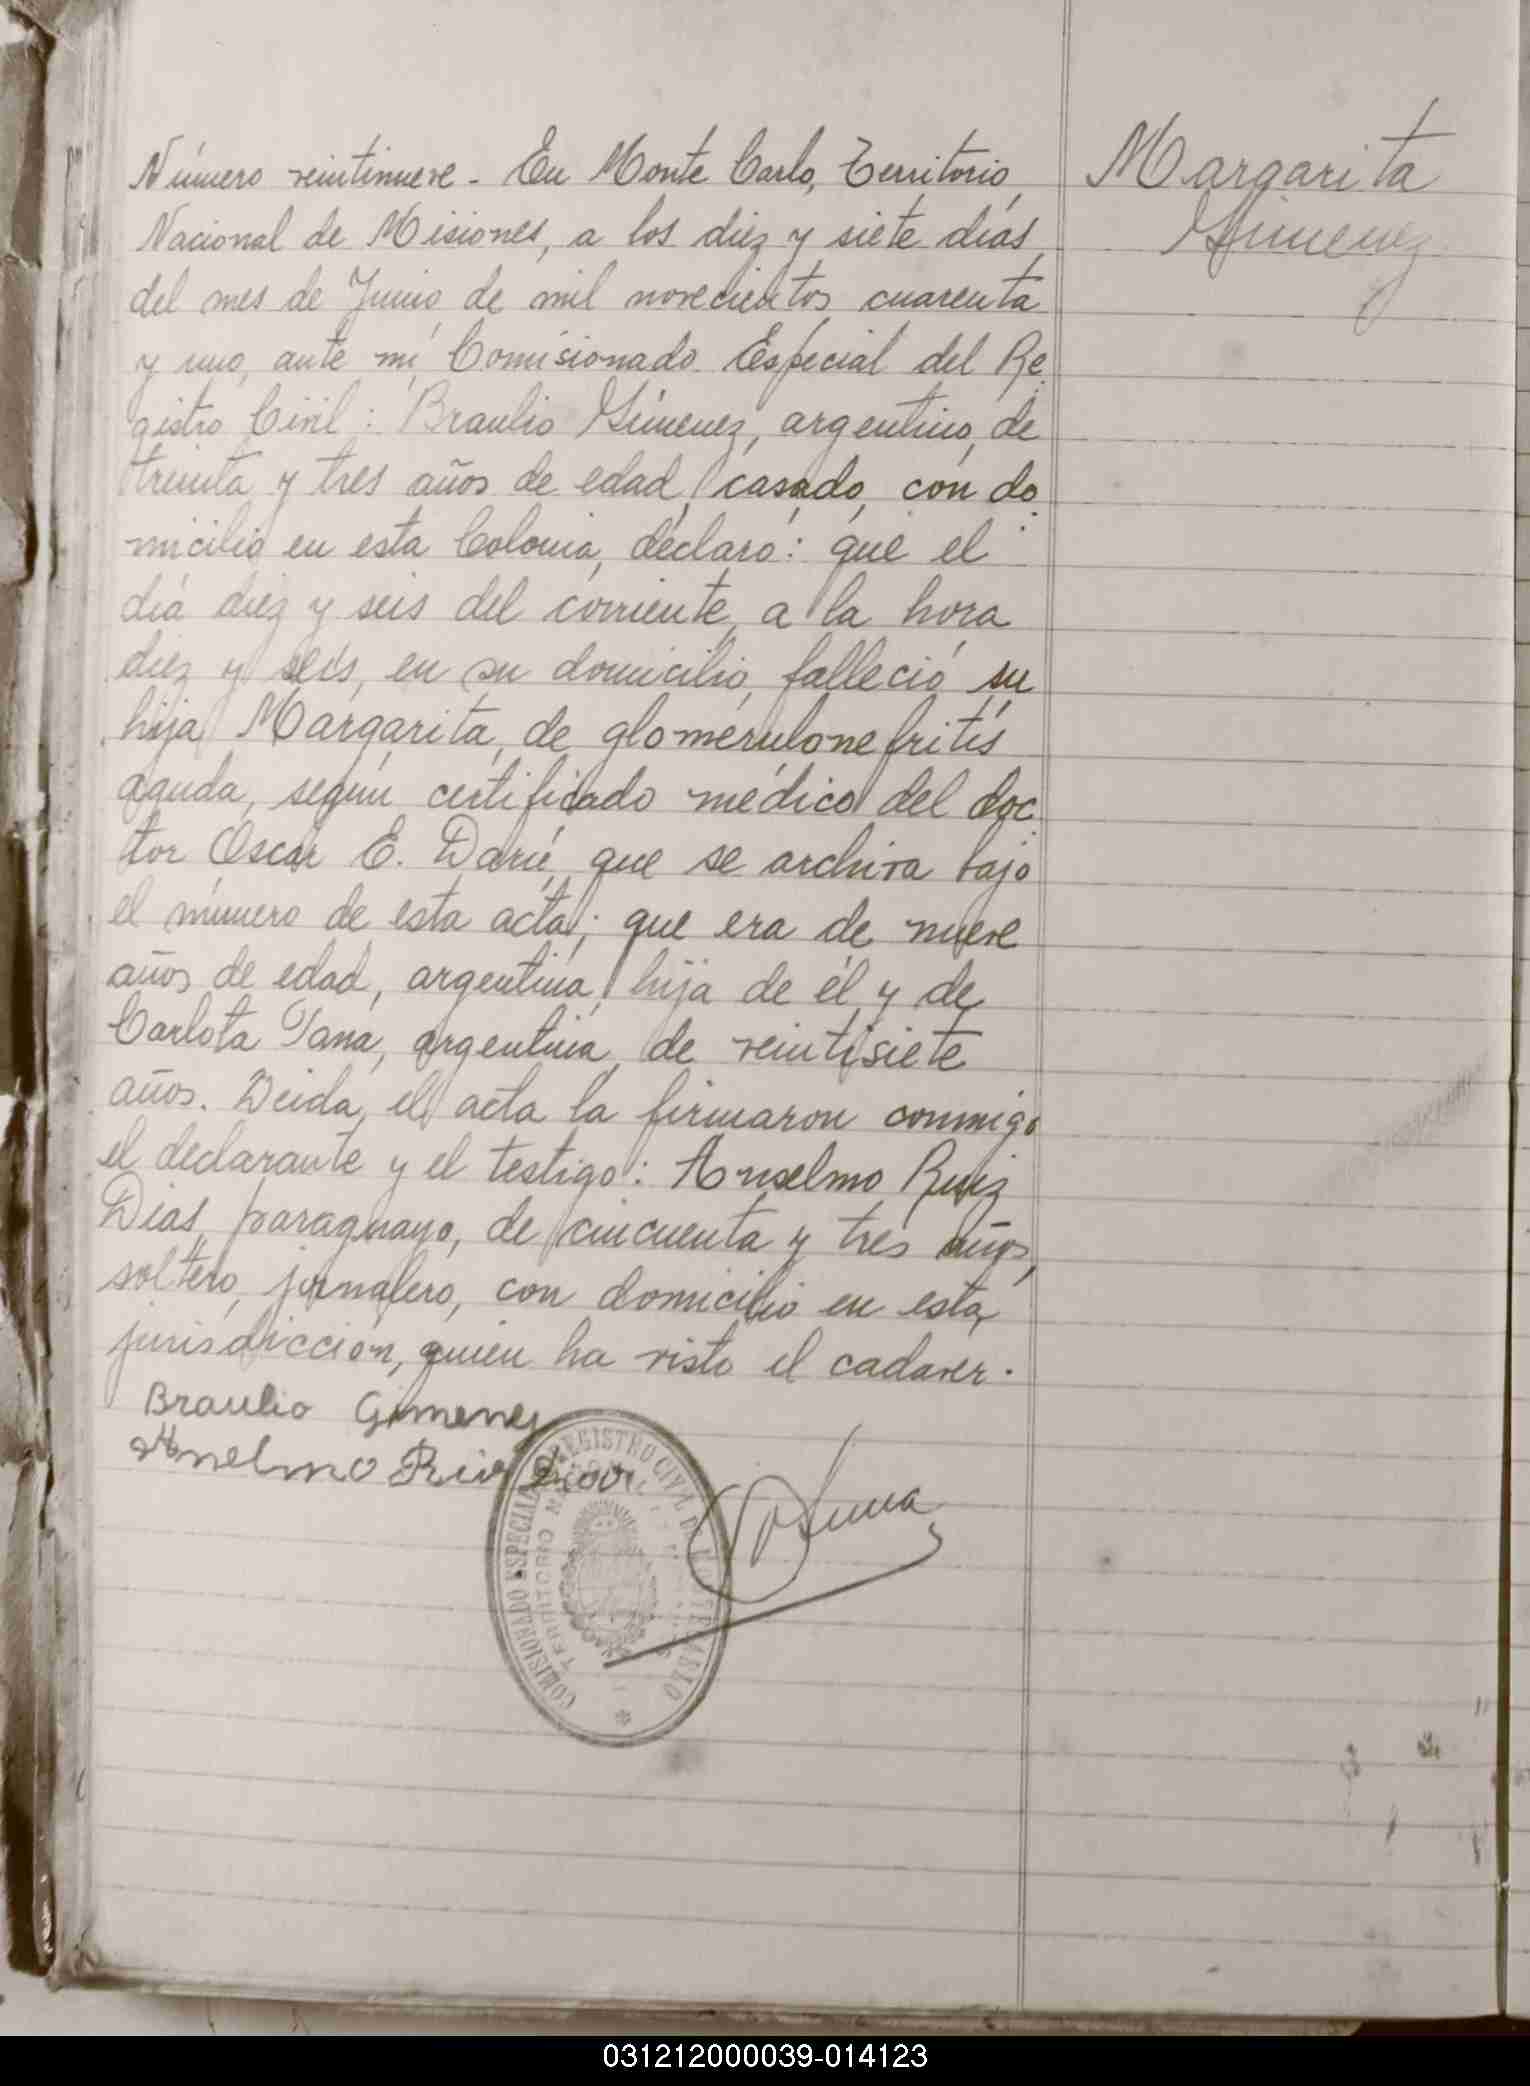 Margarita
Gimenez
Número veintinueve - En Monte Carlo, Territorio
Nacional de Misiones, a los diez y siete días
del mes de Junio de mil novecientos cuarenta
y uno, ante mí Comisionado Especial del Re
gistro Civil: Braulio Gimenez, argentino, de
treinta y tres años de edad, casado, con do
micilio en esta Colonia, declaró: que el
día diez y seis del corriente, a la hora
diez y seis, en su domicilio, falleció su
hija Margarita, de glomérulonefritis
aguda, según certificado médico del doc
tor Oscar E. Darú, que se archiva bajo
el número de esta acta; que era de nueve
años de edad, argentina, hija de él y de
Carlota Tana, argentina, de veintisiete
años. Leída el acta la firmaron conmigo
el declarante y el testigo: Anselmo Ruiz
Dias, paraguayo, de cincuenta y tres años,
soltero, jornalero, con domicilio en esta
jurisdicción, quien ha visto el cadaver.
Braulio Gimenez
Anselmo
COMISIONADO ESPECIAL REGISTRO CIVIL
TERRITORIO
031212000039-014123